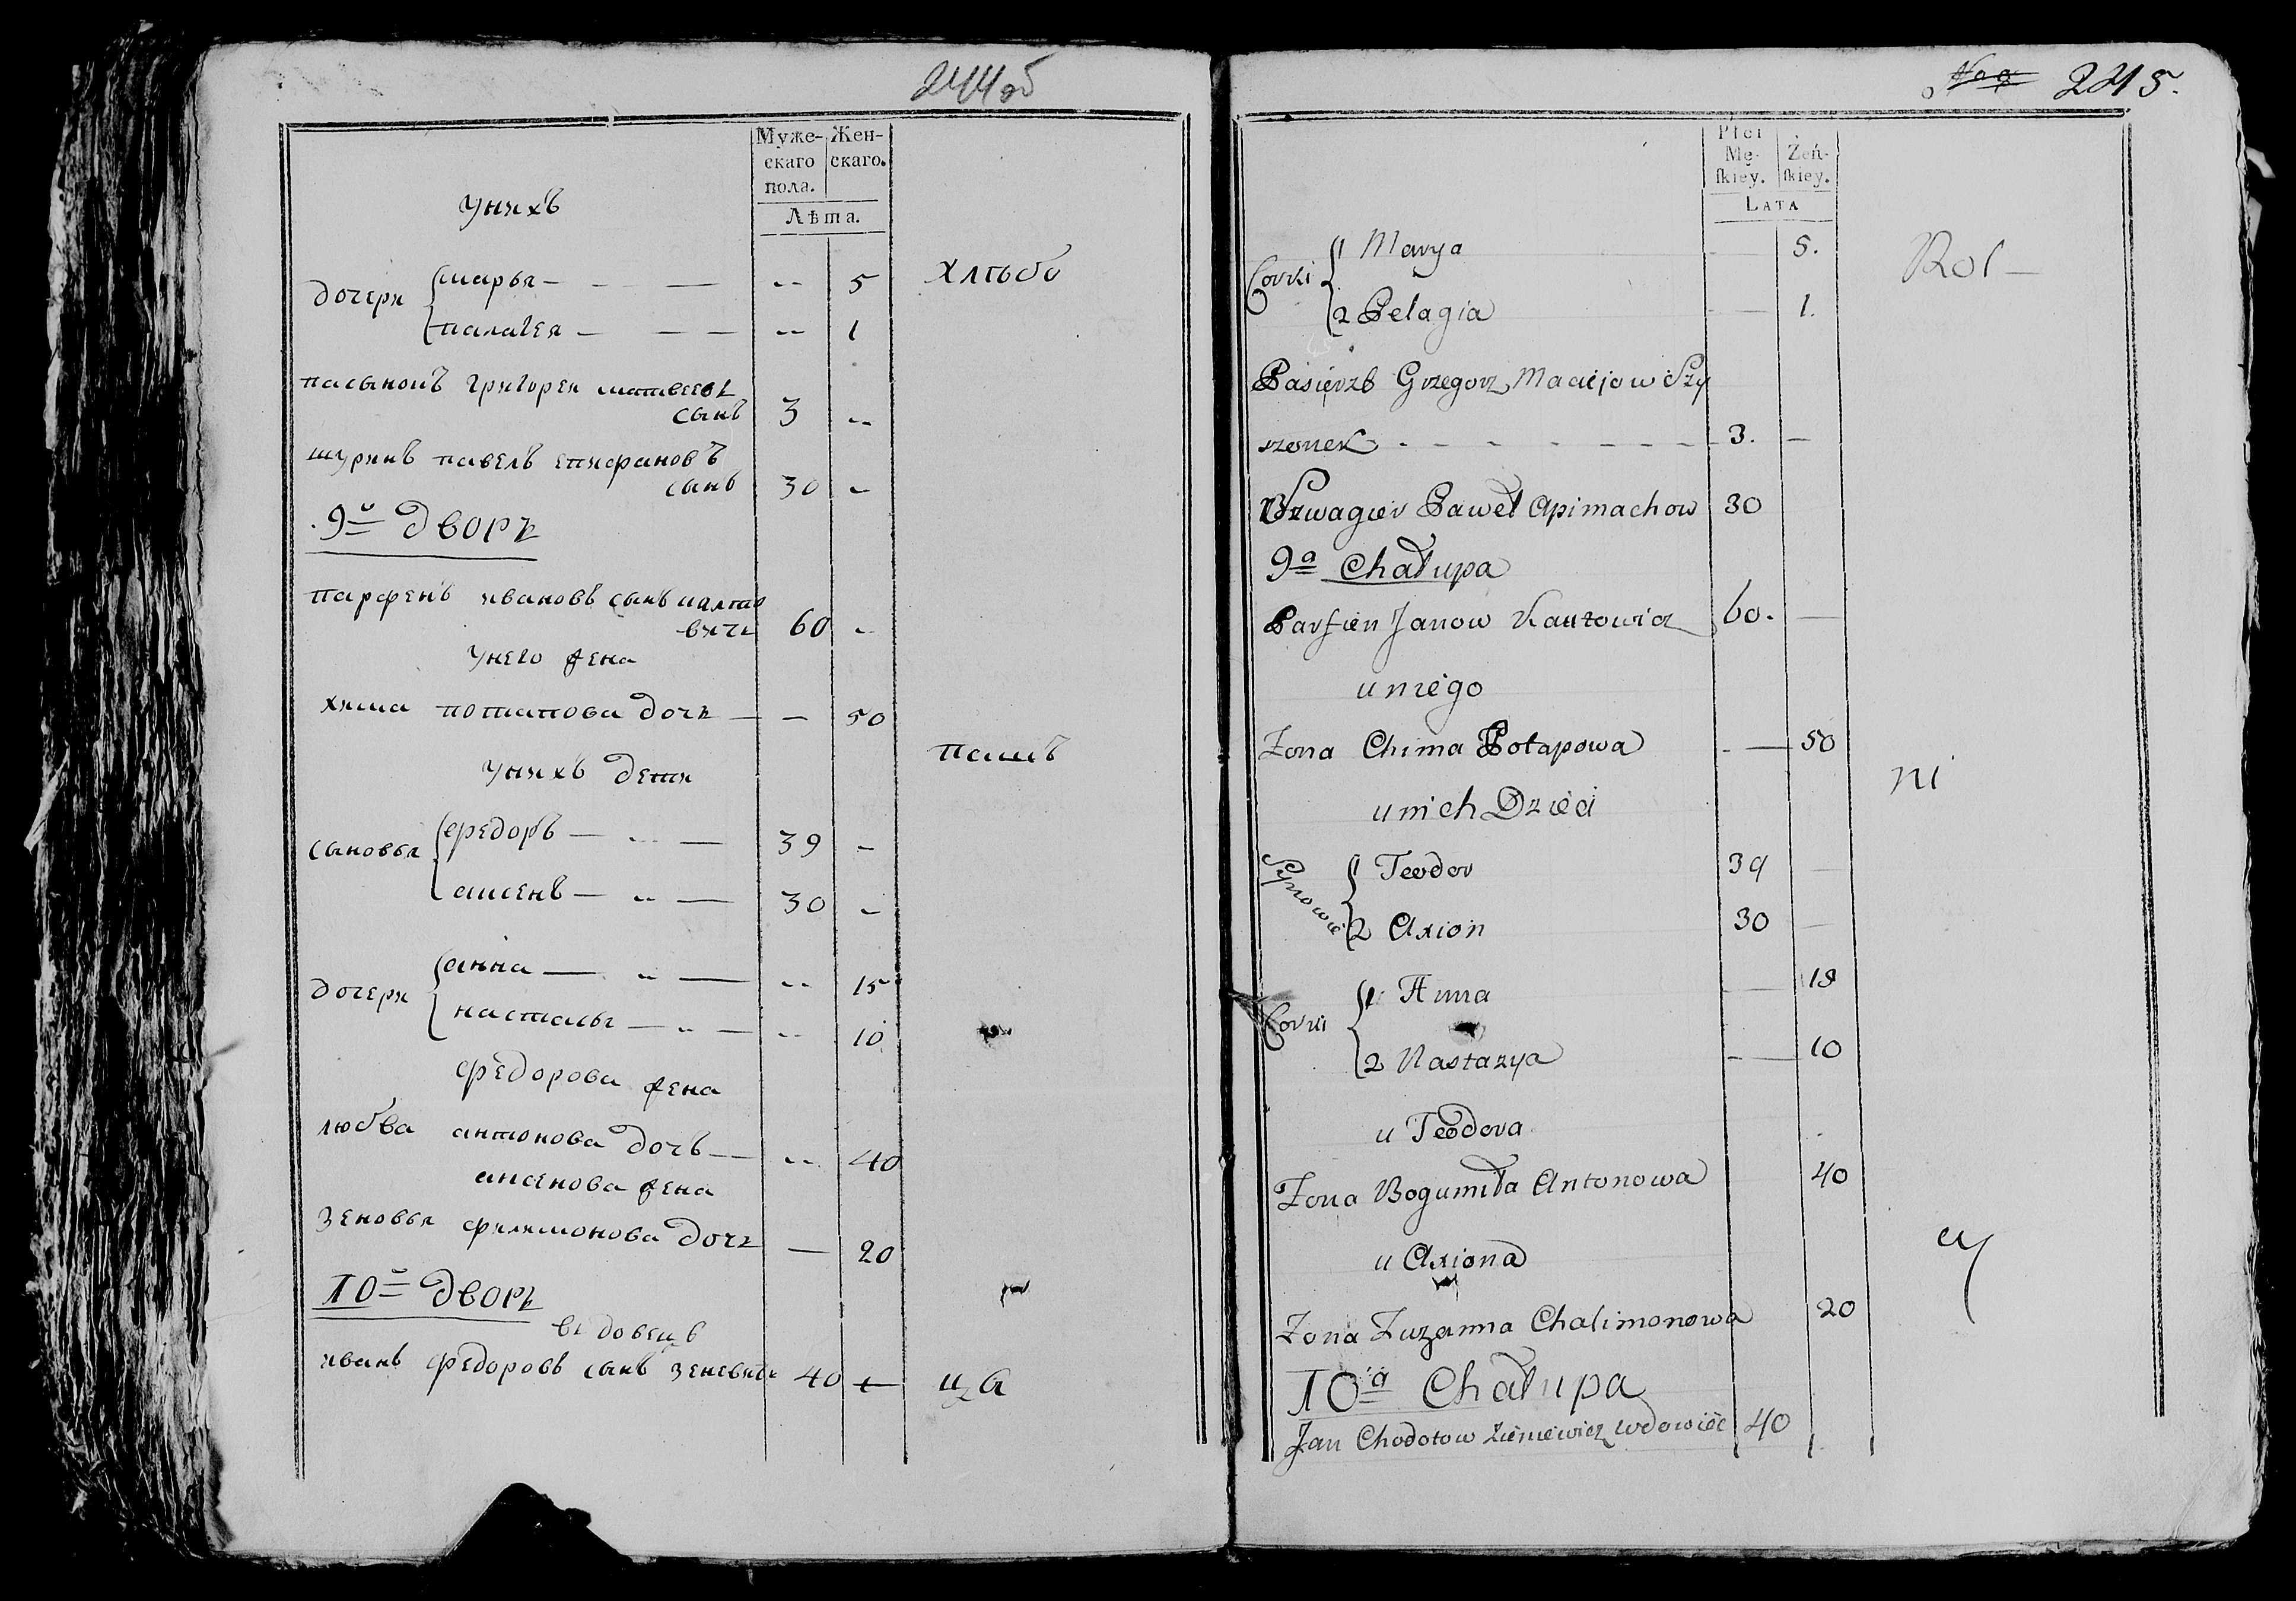 244об
Муже- Жен-
скаго скаго.
пола.
Лѣта.
унихъ
дочери
марья — — — -- 5 хлѣбо
палагея — — — -- 1
пасынокъ григореи матвеевъ
сынъ 3 --
шуринъ павелъ епифановъ
сынъ 30 -
9й дворъ
парфенъ ивановъ сынъ
вичъ 60 -
унего жена
хима потапова дочъ — — 50
унихъ дети
пашъ
сыновья
федоръ — — 39 -
аксенъ — — 30 -
дочери
анна — — -- 15
настасья — — -- 10
федорова жена
любва антонова дочъ — -- 40
аксенова жена
зеновья филимонова дочъ — 20
10й дворъ
вдовецъ
иванъ федоровъ сынъ зеневичъ 40 — ца
245.
Płci
Mę- Żeń-
ſkiey. ſkiey.
LATA
Corki
1 Marya — 5. Rol-
2 Pelagia — 1.
Pasierzb Grzegorz Maciejow Szy
szonek - - - - - - - - 3. —
Szwagier Paweł Apimachow 30
9a Chałupa
Parfien Janow Kautowicz 60. —
u niego
Zona Chima Potapowa - — 50
ni
u nich Dzieci
Synowie
1 Teodor 39 —
2 Axion 30 —
Corki
1 Anna — 18
2 Nastazya - — 10
u Teodora
Zona Bogumiła Antonowa 40
u Axiona
cy
Zona Zuzanna Chalimonowa 20
10a Chałupa
Jan Chodotow Zieniewicz wdowiec 40